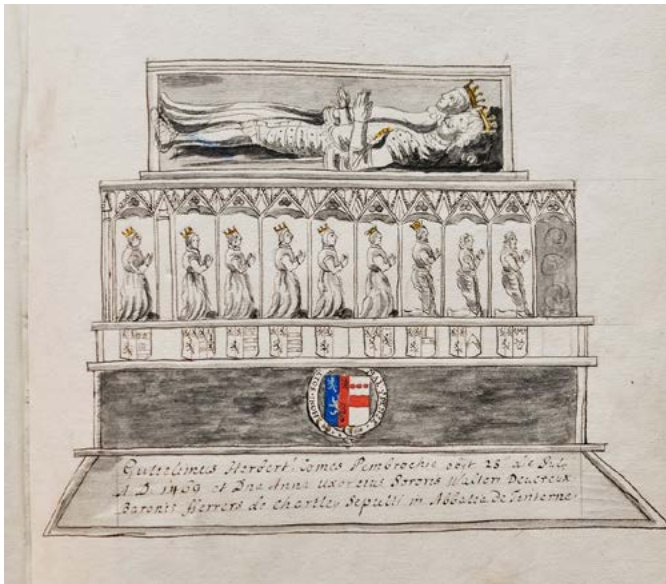 HONI SOIT QUI MAL Y PENSE
Gulielmus Herbert Comes Pembrochie obijt 28 die July
A.D. 1469 et Dna Anna uxor eius Sororis Walteri Devereux
Baronis Herrers de Chartley Sepulti in Abbatia De Tinterne